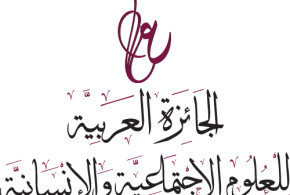 الجائزة العربية
للعلوم الاجتماعية والإنسانية